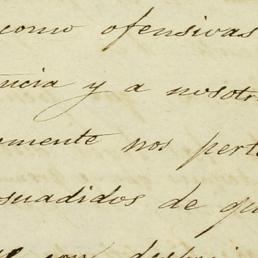 como ofensivas
ncia y a nosotr
mente nos pert
suadidos de qu
con